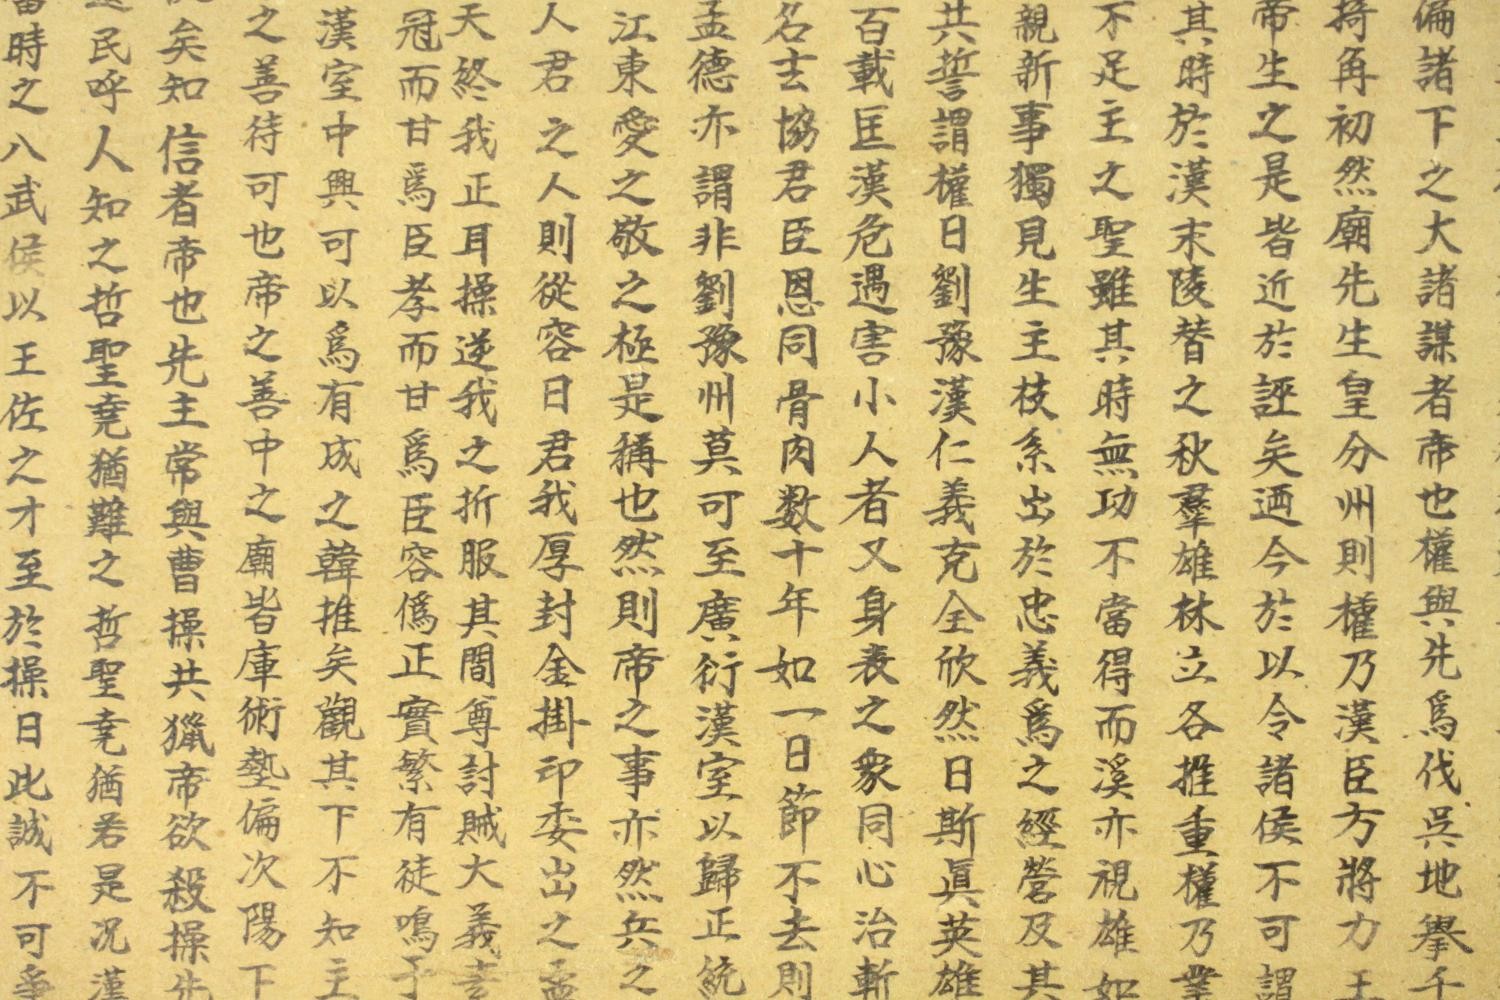 偏諸下之大諸謀者帝也權與先爲伐吳地擧千
掎角初然廟先生皇分州則權乃漢臣方將力王
帝生之是皆近於誣矣迺今於以令諸侯不可謂
其時於漢末陵替之秋羣雄林立各推重權乃業
不足主之聖雖其時無功不當得而溪亦視雄如
親新事獨見生主枝系出於忠義爲之經營及其
共誓謂權日劉豫漢仁義克全欣然日斯眞英雄
百載匡漢危遇害小人者又身表之衆同心治斬
名去協君臣恩同骨肉数十年如一日節不去則
孟德亦謂非劉豫州莫可至廣衍漢室以歸正統
江東愛之敬之極是稱也然則帝之事亦然兵之
人君之人則從容日君我厚封金掛印委出之孟
天終我正耳操逆我之折服其間尊討賊大義素
冠而甘爲臣孝而甘爲臣容僞正實繁有徒鳴予
漢室中興可以爲有成之韓推矣觀其下不知主
之善待可也帝之善中之廟皆庫術埶偏次陽下
矣知信者帝也先主常與曹操共獵帝欲殺操先
民呼人知之哲聖堯猶難之哲聖堯猶若是况漢
當時之八武侯以王佐之才至於操日此誠不可爭